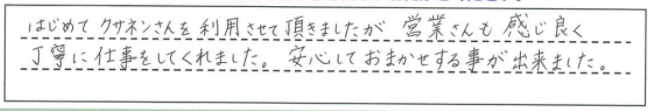 はじめて クサネンさんを利用させて頂きましたが 営業さんも 感じ良く
丁寧に仕事をしてくれました。安心しておまかせする事が出来ました。